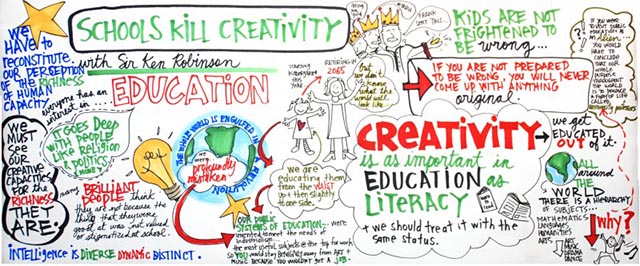 WE HAVE to
RECONSTITUTE
OUR PERCEPTION
OF THE RICHNESS
OF HUMAN
CAPACITY
SCHOOLS KILL CREATIVITY
with Sir Ken Robinson
everyone has an
interest in...
EDUCATION
IT GOES DEEP
WITH PEOPLE
LIKE RELIGION
POLITICS
& MONEY
WE
MUST
SEE
OUR
CREATIVE
CAPACITIES
FOR the
RICHNESS
THEY
ARE.
many BRILLIANT
PEOPLE think
they are not because the
thing that they were
good at was not valued
or stigmatized at school.
INTELLIGENCE IS DIVERSE DYNAMIC DISTINCT.
THE WHOLE WORLD IS ENGULFED IN A REVOLUTION
profoundly
mistaken
OUR PUBLIC
SYSTEMS OF EDUCATION... were
invented to meet the needs of
industrialism...
the most useful subjects @ the top for work
SO YOU would stay BENIGNLY away from ART +
MUSIC because YOU WOULDN'T GET A JOB.
STARTING
KINDERGARTEN
THIS
YEAR
RETIRING IN
2065
But
we don't
know
what the
world will
look like
we are
educating them
from the WAIST
up + then slightly
to one side.
FRANK
SENT THIS...
KIDS ARE NOT
FRIGHTENED
TO BE wrong...
IF YOU ARE NOT PREPARED
TO BE WRONG, YOU WILL NEVER
COME UP WITH ANYTHING
original
CREATIVITY
is as important in
EDUCATION as
LITERACY
+ we should treat it with the
same status.
we get
EDUCATED
OUT of it.
IF YOU WERE
TO VISIT PUBLIC
EDUCATION AS
AN Alien...
YOU WOULD
HAVE TO
CONCLUDE
THAT THE
WHOLE
PURPOSE
THROUGHOUT
THE WORLD
IS TO PRODUCE
CALLED
All
around
the
WORLD
THERE IS A HIERARCHY
OF SUBJECTS...
MATHEMATICS
LANGUAGES
HUMANITIES
ARTS
ART
MUSIC
DRAMA
DANCE
why?